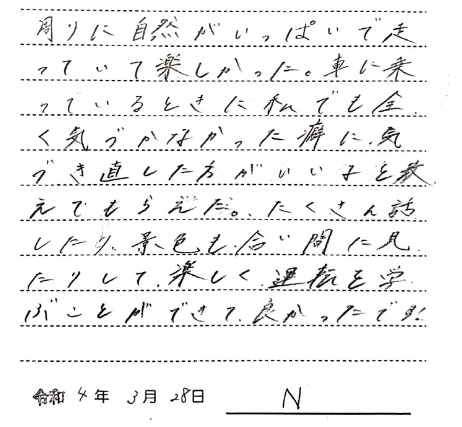 周りに自然がいっぱいで走
っていて楽しかった。車に乗
っているときに私でも全
く気づかなかった癖に、気
づき直した方がいい子を教
えてもらえた。たくさん話
したり、景色も合い間に見
たりして、楽しく運転を学
ぶことができて、良かったです!
令和 4年 3月 28日 N